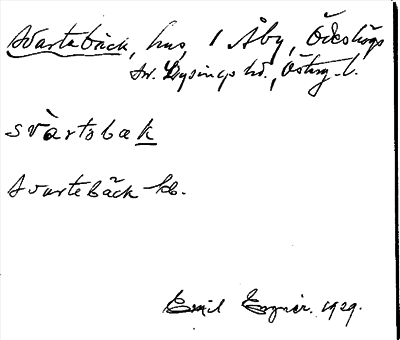 Svartebäck, hus, 1 Åby, Ödeshögs
sn. Lysings hd., Österg. l.
svàrtəbäk
Svartebäck kb.
Emil 1929.